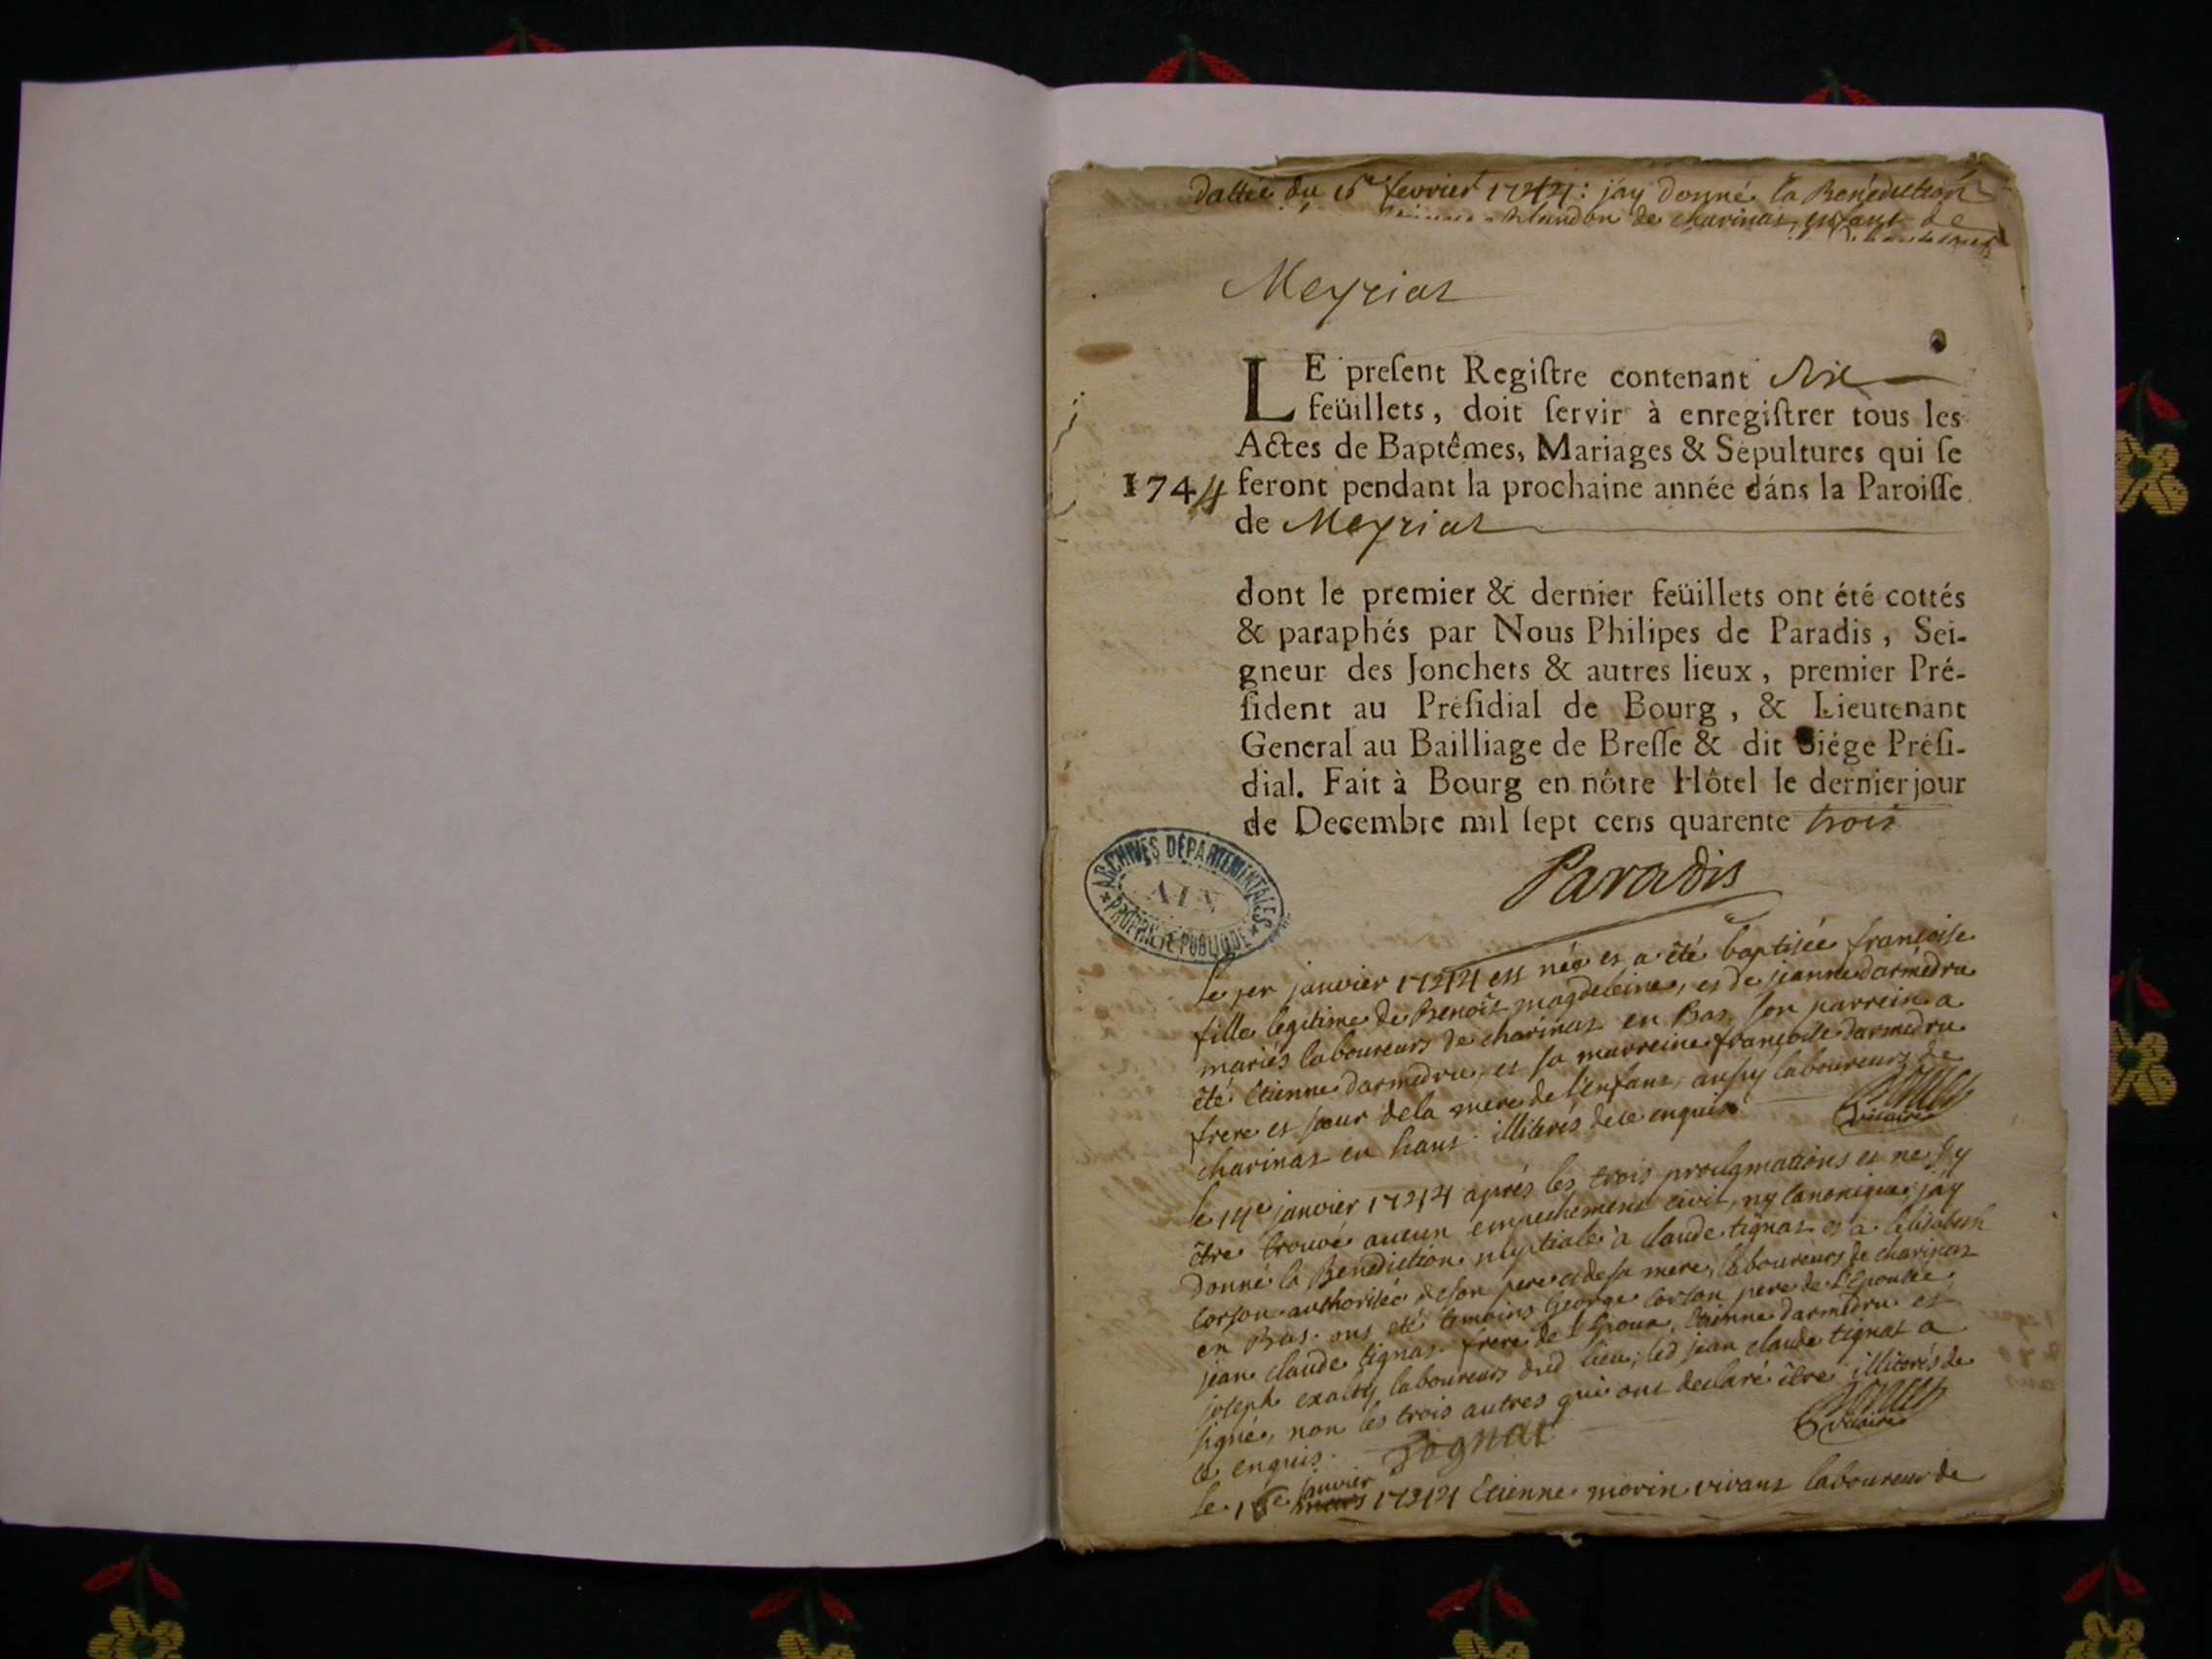 dattée du 15e fevrier 1744: jay donné la Benediction
de charinat, enfant de
Meyriat
LE preſent Regiſtre contenant dix
feüillets, doit ſervir à enregiſtrer tous les
Actes de Baptêmes, Mariages & Sépultures qui ſe
1744 feront pendant la prochaine année dáns la Paroiſſe
de Meyriat
dont le premier & dernier feüillets ont été cottés
& paraphés par Nous Philipes de Paradis, Sei-
gneur des Jonchets & autres lieux, premier Pré-
ſident au Préſidial de Bourg, & Lieutenant
General au Bailliage de Breſſe & dit Siége Préſi-
dial. Fait à Bourg en nôtre Hôtel le dernier jour
de Decembre mil ſept cens quarente trois
Paradis
ARCHIVES DÉPARTEMENTALES
AIN
PROPRIÉTÉ PUBLIQUE
le 1er janvier 1744 est née et a été baptisée françoise
fille legitime de Benoit magdeleine, et de jeanne darmedru
mariés laboureurs de charinat en Bas, son parrein a
été Etienne darmedru, et sa marreine françoise darmedru
frere et sœur de la mere de l'enfant, aussy laboureurs de
charinat en haut. illiterés de ce enquis
vicaire
le 14e janvier 1744 aprés les trois proulgmations et ne s'y
être trouvé aucun empechement civil, ny canonique, jay
donné la Benediction nuptiale à claude tignat et à
corson authorisée de son pere et de sa mere, laboureurs de charinat
en Bas. ont eté temoins George corson pere de l'Epousée,
jean claude tignat frere de l'Epoux, Etienne darmedru et
joseph laboureurs dud lieu; led jean claude tignat a
signé, non les trois autres qui ont declaré être illiterés de
ce enquis. Tignat
vicaire
le janvier 1744 Etienne morin vivant laboureur de